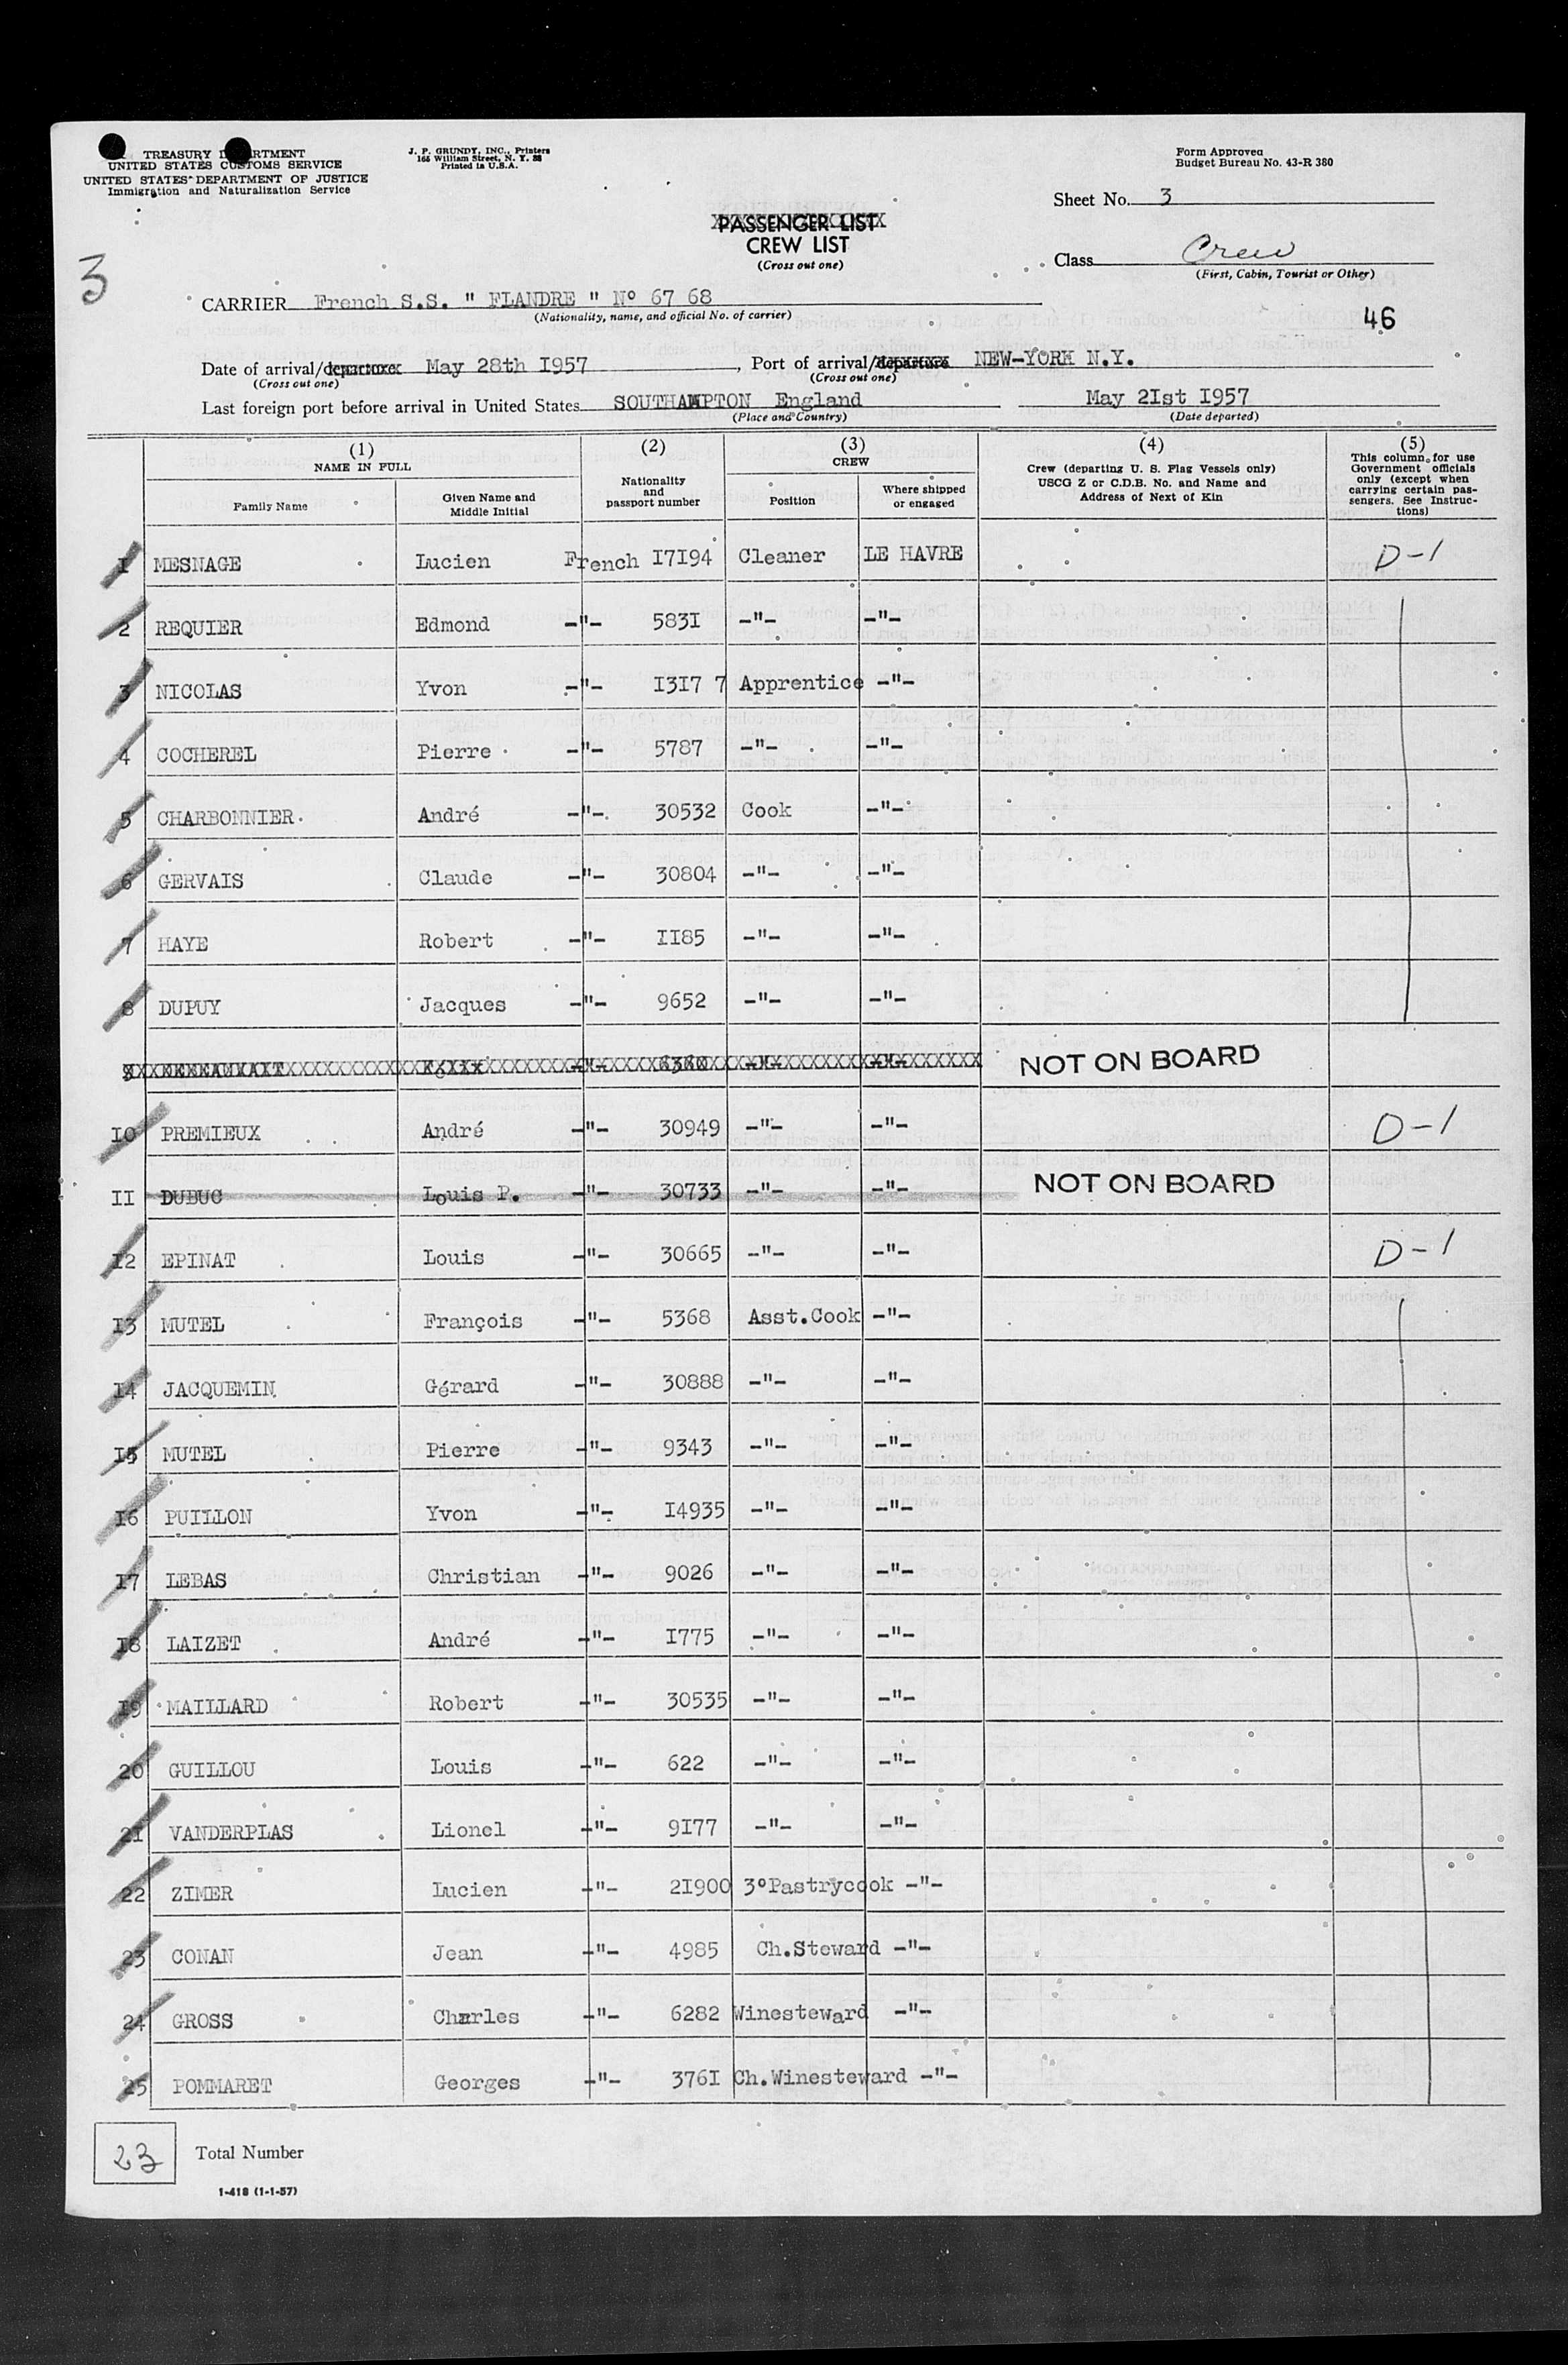 TREASURY DEPARTMENT
UNITED STATES CUSTOMS SERVICE
UNITED STATES DEPARTMENT OF JUSTICE
Immigration and Naturalization Service
J. P. GRUNDY, INC., Printers
165 William Street, N. Y. 38
Printed in U.S.A.
Form Approved
Budget Bureau No. 43-R 380
Sheet No. 3
PASSENGER LIST
CREW LIST
(Cross out one)
Class Crew
(First, Cabin, Tourist or Other)
3
CARRIER French S.S. " FLANDRE " Nº 67 68
(Nationality, name, and official No. of carrier)
46
Date of arrival/departure May 28th I957, Port of arrival/departure NEW-YORK N.Y.
(Cross out one) (Cross out one)
Last foreign port before arrival in United States SOUTHAMPTON England May 2Ist I957
(Place and Country) (Date departed)
(1) NAME IN FULL
Family Name
Given Name and Middle Initial
(2) Nationality and passport number
(3) CREW
Position
Where shipped or engaged
(4) Crew (departing U. S. Flag Vessels only) USCG Z or C.D.B. No. and Name and Address of Next of Kin
(5) This column for use Government officials only (except when carrying certain passengers. See Instructions)
I MESNAGE Lucien French I7I94 Cleaner LE HAVRE D-1
2 REQUIER Edmond -"- 583I -"- -"-
3 NICOLAS Yvon -"- I3I7 7 Apprentice -"-
4 COCHEREL Pierre -"- 5787 -"- -"-
5 CHARBONNIER André -"- 30532 Cook -"-
6 GERVAIS Claude -"- 30804 -"- -"-
7 HAYE Robert -"- II85 -"- -"-
8 DUPUY Jacques -"- 9652 -"- -"-
9 -"- -"- -"- NOT ON BOARD
IO PREMIEUX André -"- 30949 -"- -"- D-1
II DUBUC Louis P. -"- 30733 -"- -"- NOT ON BOARD
I2 EPINAT Louis -"- 30665 -"- -"- D-1
I3 MUTEL François -"- 5368 Asst.Cook -"-
I4 JACQUEMIN Gérard -"- 30888 -"- -"-
I5 MUTEL Pierre -"- 9343 -"- -"-
I6 PUILLON Yvon -"- I4935 -"- -"-
I7 LEBAS Christian -"- 9026 -"- -"-
I8 LAIZET André -"- I775 -"- -"-
I9 MAILLARD Robert -"- 30535 -"- -"-
20 GUILLOU Louis -"- 622 -"- -"-
2I VANDERPLAS Lionel -"- 9I77 -"- -"-
22 ZIMER Lucien -"- 2I900 3ºPastrycook -"-
23 CONAN Jean -"- 4985 Ch.Steward -"-
24 GROSS Charles -"- 6282 Winesteward -"-
25 POMMARET Georges -"- 376I Ch.Winesteward -"-
23 Total Number
1-418 (1-1-57)